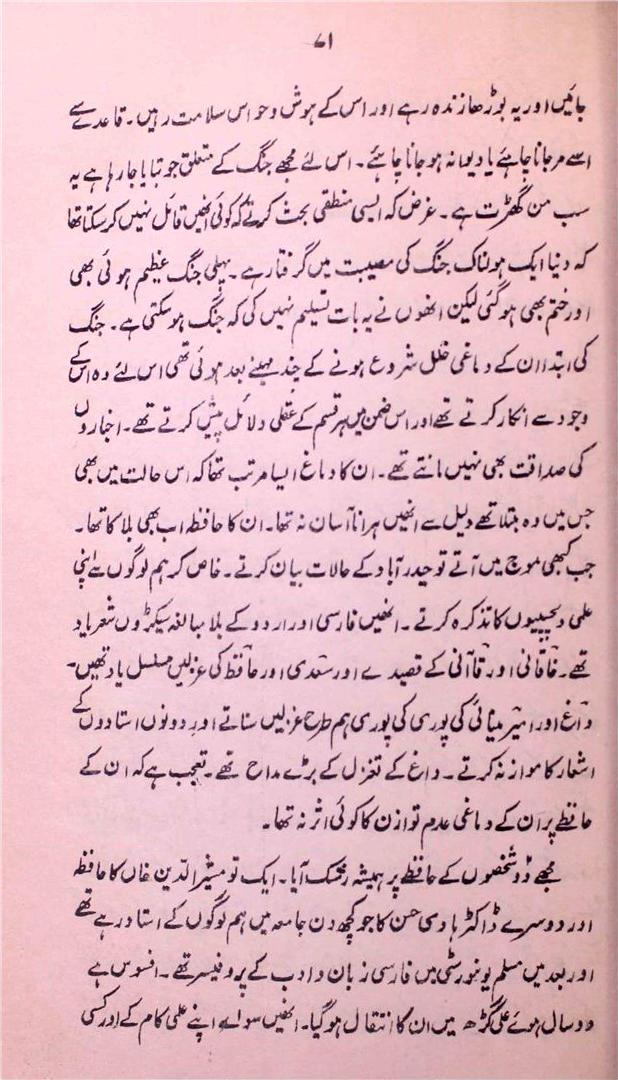 ۷۱
جائیں اور یہ بوڑھا زندہ رہے اور اس کے ہوش و حواس سلامت رہیں۔ قاعدے سے
اسے مر جانا چاہئے یا دیوانہ ہو جانا چاہئے۔ اس لئے مجھے جنگ کے متعلق جو بتایا جا رہا ہے یہ
سب من گھڑت ہے۔ غرض کہ ایسی منطقی بحث کرتے کہ کوئی انھیں قائل نہیں کر سکتا تھا
کہ دنیا ایک ہولناک جنگ کی مصیبت میں گرفتار ہے۔ پہلی جنگ عظیم ہوئی بھی
اور ختم بھی ہو گئی لیکن انھوں نے یہ بات تسلیم نہیں کی کہ جنگ ہو سکتی ہے۔ جنگ
کی ابتدا ان کے دماغی خلل شروع ہونے کے چند مہینے بعد ہوئی تھی اس لئے وہ اس کے
وجود سے انکار کرتے تھے اور اس ضمن میں ہر قسم کے عقلی دلائل پیش کرتے تھے۔ اخباروں
کی صداقت بھی نہیں مانتے تھے۔ ان کا دماغ ایسا مرتب تھا کہ اس حالت میں بھی
جس میں وہ مبتلا تھے دلیل سے انھیں ہرانا آسان نہ تھا۔ ان کا حافظہ اب بھی بلا کا تھا۔
جب کبھی موج میں آتے تو حیدرآباد کے حالات بیان کرتے۔ خاص کر ہم لوگوں سے اپنی
علمی دلچسپیوں کا تذکرہ کرتے۔ انھیں فارسی اور اردو کے بلا مبالغہ سیکڑوں شعر یاد
تھے۔ خاقانی اور قاآنی کے قصیدے اور سعدی اور حافظ کی غزلیں مسلسل یاد تھیں۔
داغ اور امیر مینائی کی پوری کی پوری ہم طرح غزلیں سناتے اور دونوں استادوں کے
اشعار کا موازنہ کرتے۔ داغ کے تغزل کے بڑے مداح تھے۔ تعجب ہے کہ ان کے
حافظے پر ان کے دماغی عدم توازن کا کوئی اثر نہ تھا۔
مجھے دو شخصوں کے حافظے پر ہمیشہ رشک آیا۔ ایک تو مشیر الدین خاں کا حافظہ
اور دوسرے ڈاکٹر ہادی حسن کا جو کچھ دن جامعہ میں ہم لوگوں کے استاد رہے تھے
اور بعد میں مسلم یونیورسٹی میں فارسی زبان و ادب کے پروفیسر تھے۔ افسوس ہے
دو سال ہوئے علی گڑھ میں ان کا انتقال ہو گیا۔ انھیں سوائے اپنے علمی کام کے اور کسی